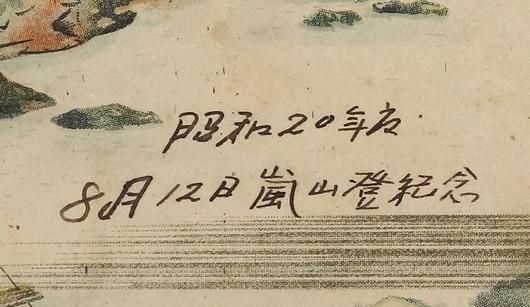 昭和20年度
8月12日嵐山登紀念